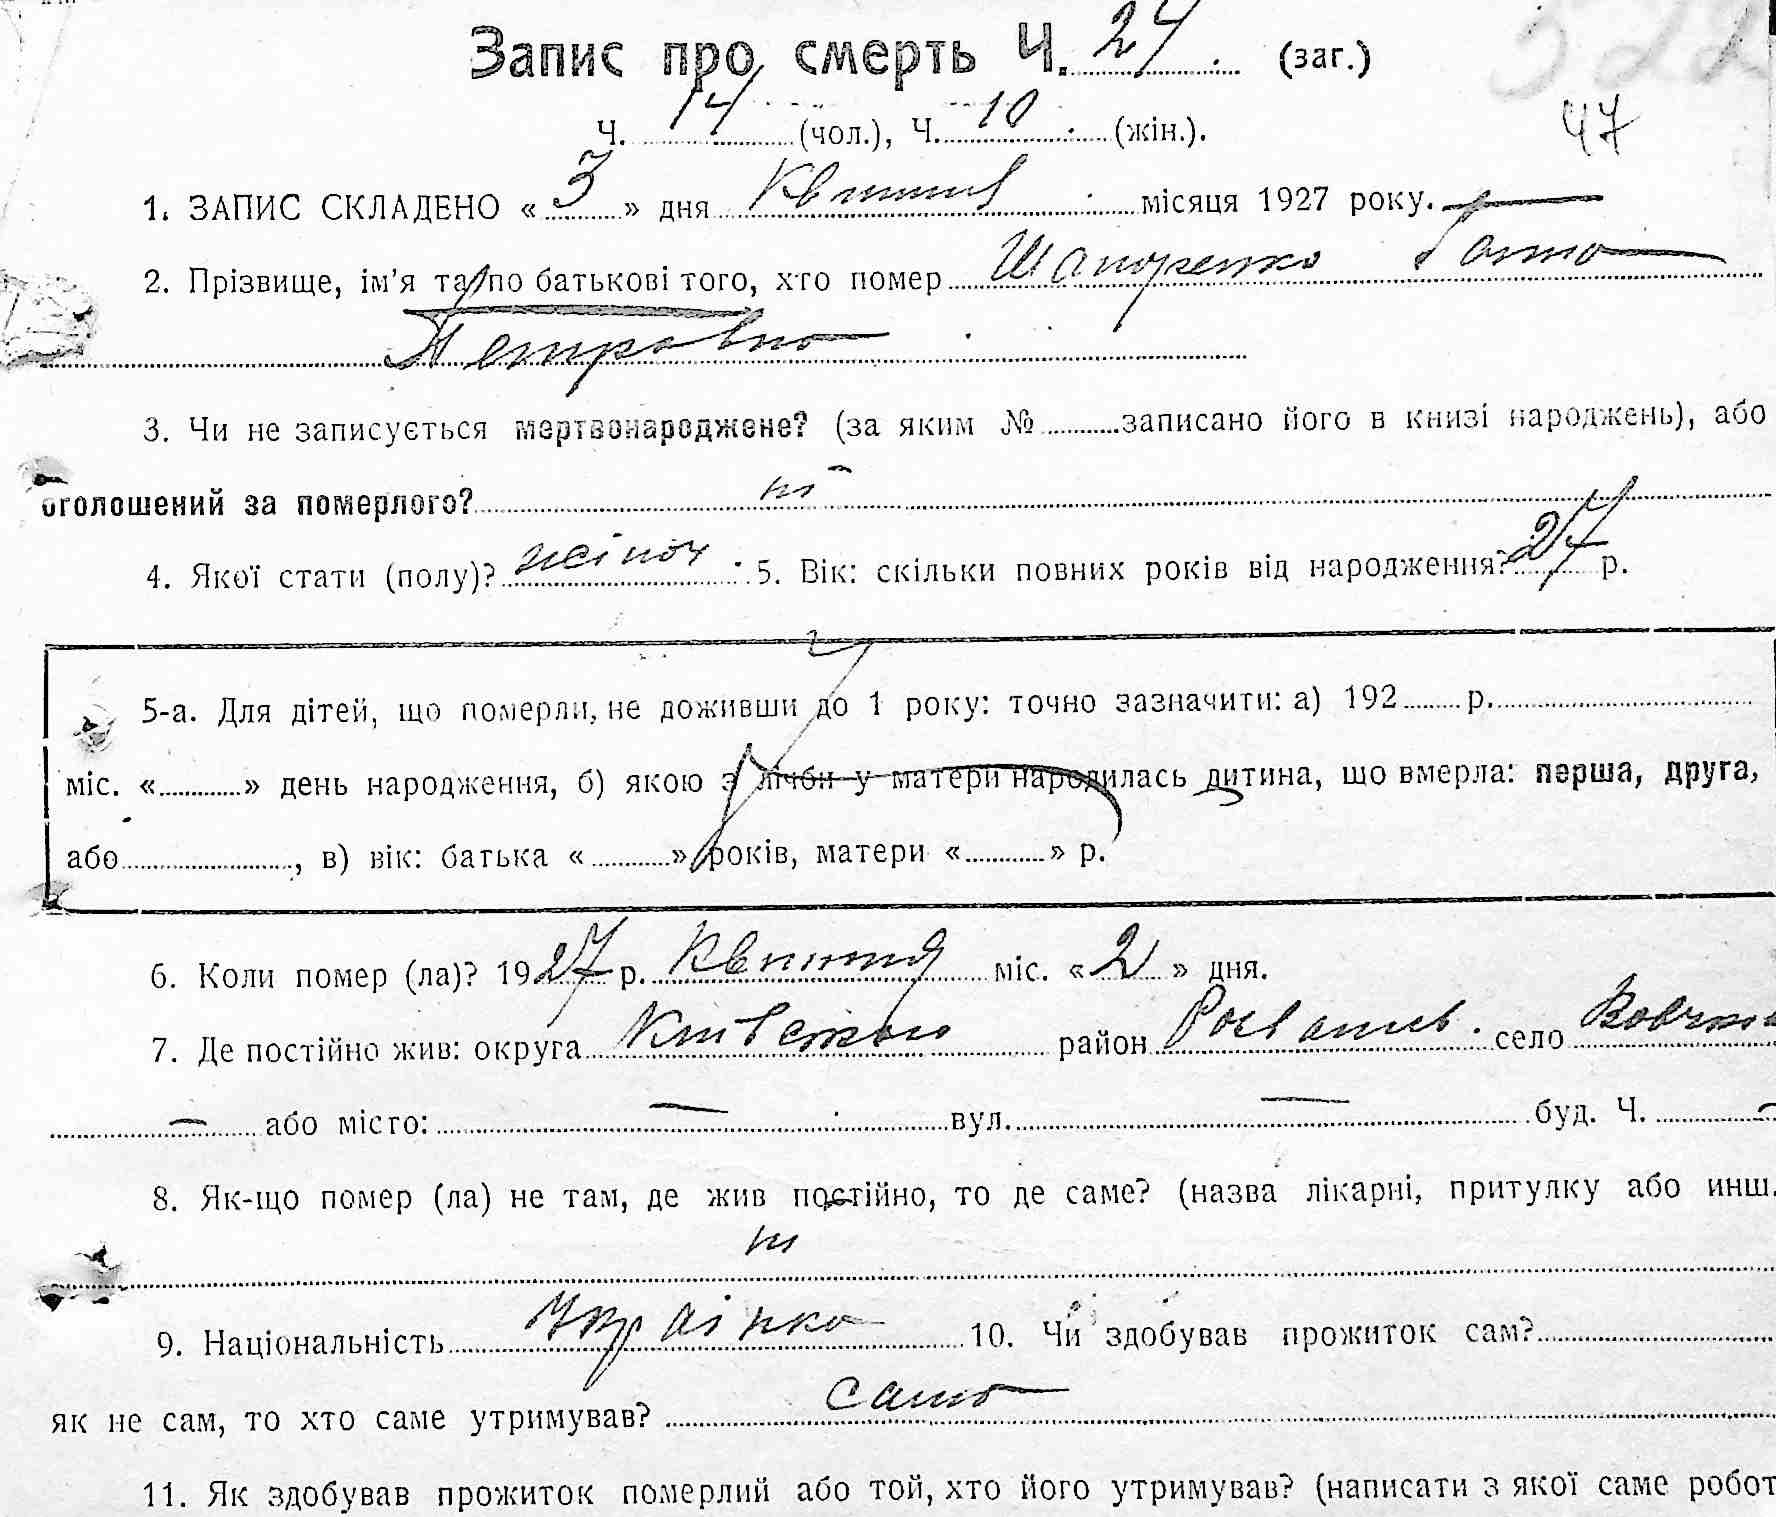 Запис про смерть Ч. 24 (заг.)
322
Ч. 14 (чол.), Ч. 10 (жін.).
47
1. ЗАПИС СКЛАДЕНО «3» дня Квітня місяця 1927 року.
2. Прізвище, ім'я та по батькові того, хто помер Шапоренко
Петровна
3. Чи не записується мертвонароджене? (за яким № записано його в книзі народжень), або
оголошений за померлого? ні
4. Якої стати (полу)? жіноч 5. Вік: скільки повних років від народження? 27 р.
5-а. Для дітей, що померли, не доживши до 1 року: точно зазначити: а) 192 р.
міс. « » день народження, б) якою з лічби у матери народилась дитина, що вмерла: перша, друга,
або , в) вік: батька « » років, матери « » р.
6. Коли помер (ла)? 1927 р. Квітня міс. «2» дня.
7. Де постійно жив: округа Київського район село
— або місто: — вул. — буд. Ч. —
8. Як-що помер (ла) не там, де жив постійно, то де саме? (назва лікарні, притулку або инш.
ні
9. Національність Українка 10. Чи здобував прожиток сам?
як не сам, то хто саме утримував? сама
11. Як здобував прожиток померлий або той, хто його утримував? (написати з якої саме робот